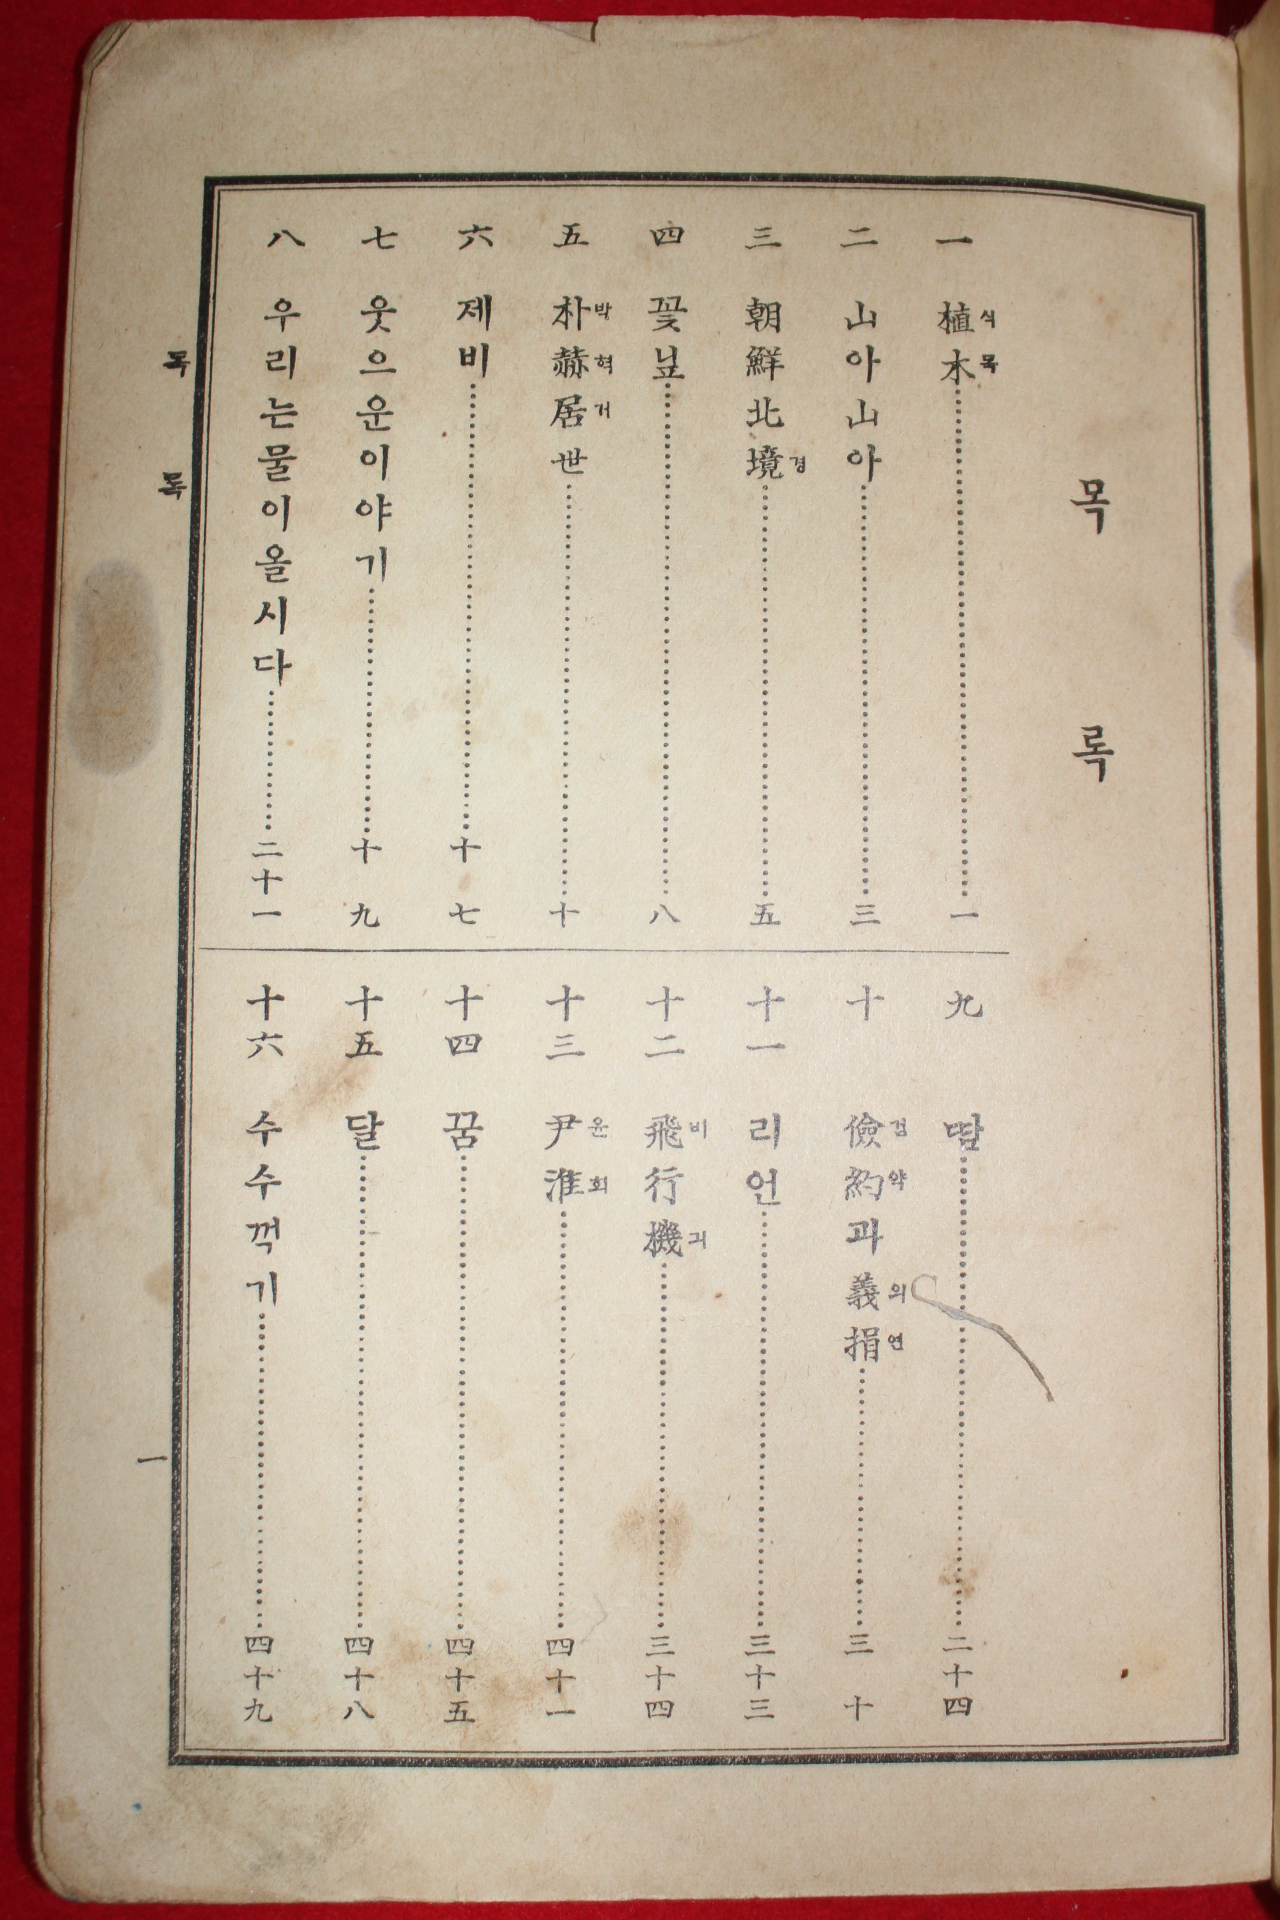 목록
一 植木 식목 一
二 山아山아 三
三 朝鮮北境 경 五
四 꽃닢 八
五 朴赫居世 박혁거 十
六 제비 十七
七 웃으운이야기 十九
八 우리는물이올시다 二十一
九 땀 二十四
十 儉約과義捐 검약의연 三十
十一 리언 三十三
十二 飛行機 비긔 三十四
十三 尹淮 윤회 四十一
十四 꿈 四十五
十五 달 四十八
十六 수수꺽기 四十九
목록 一